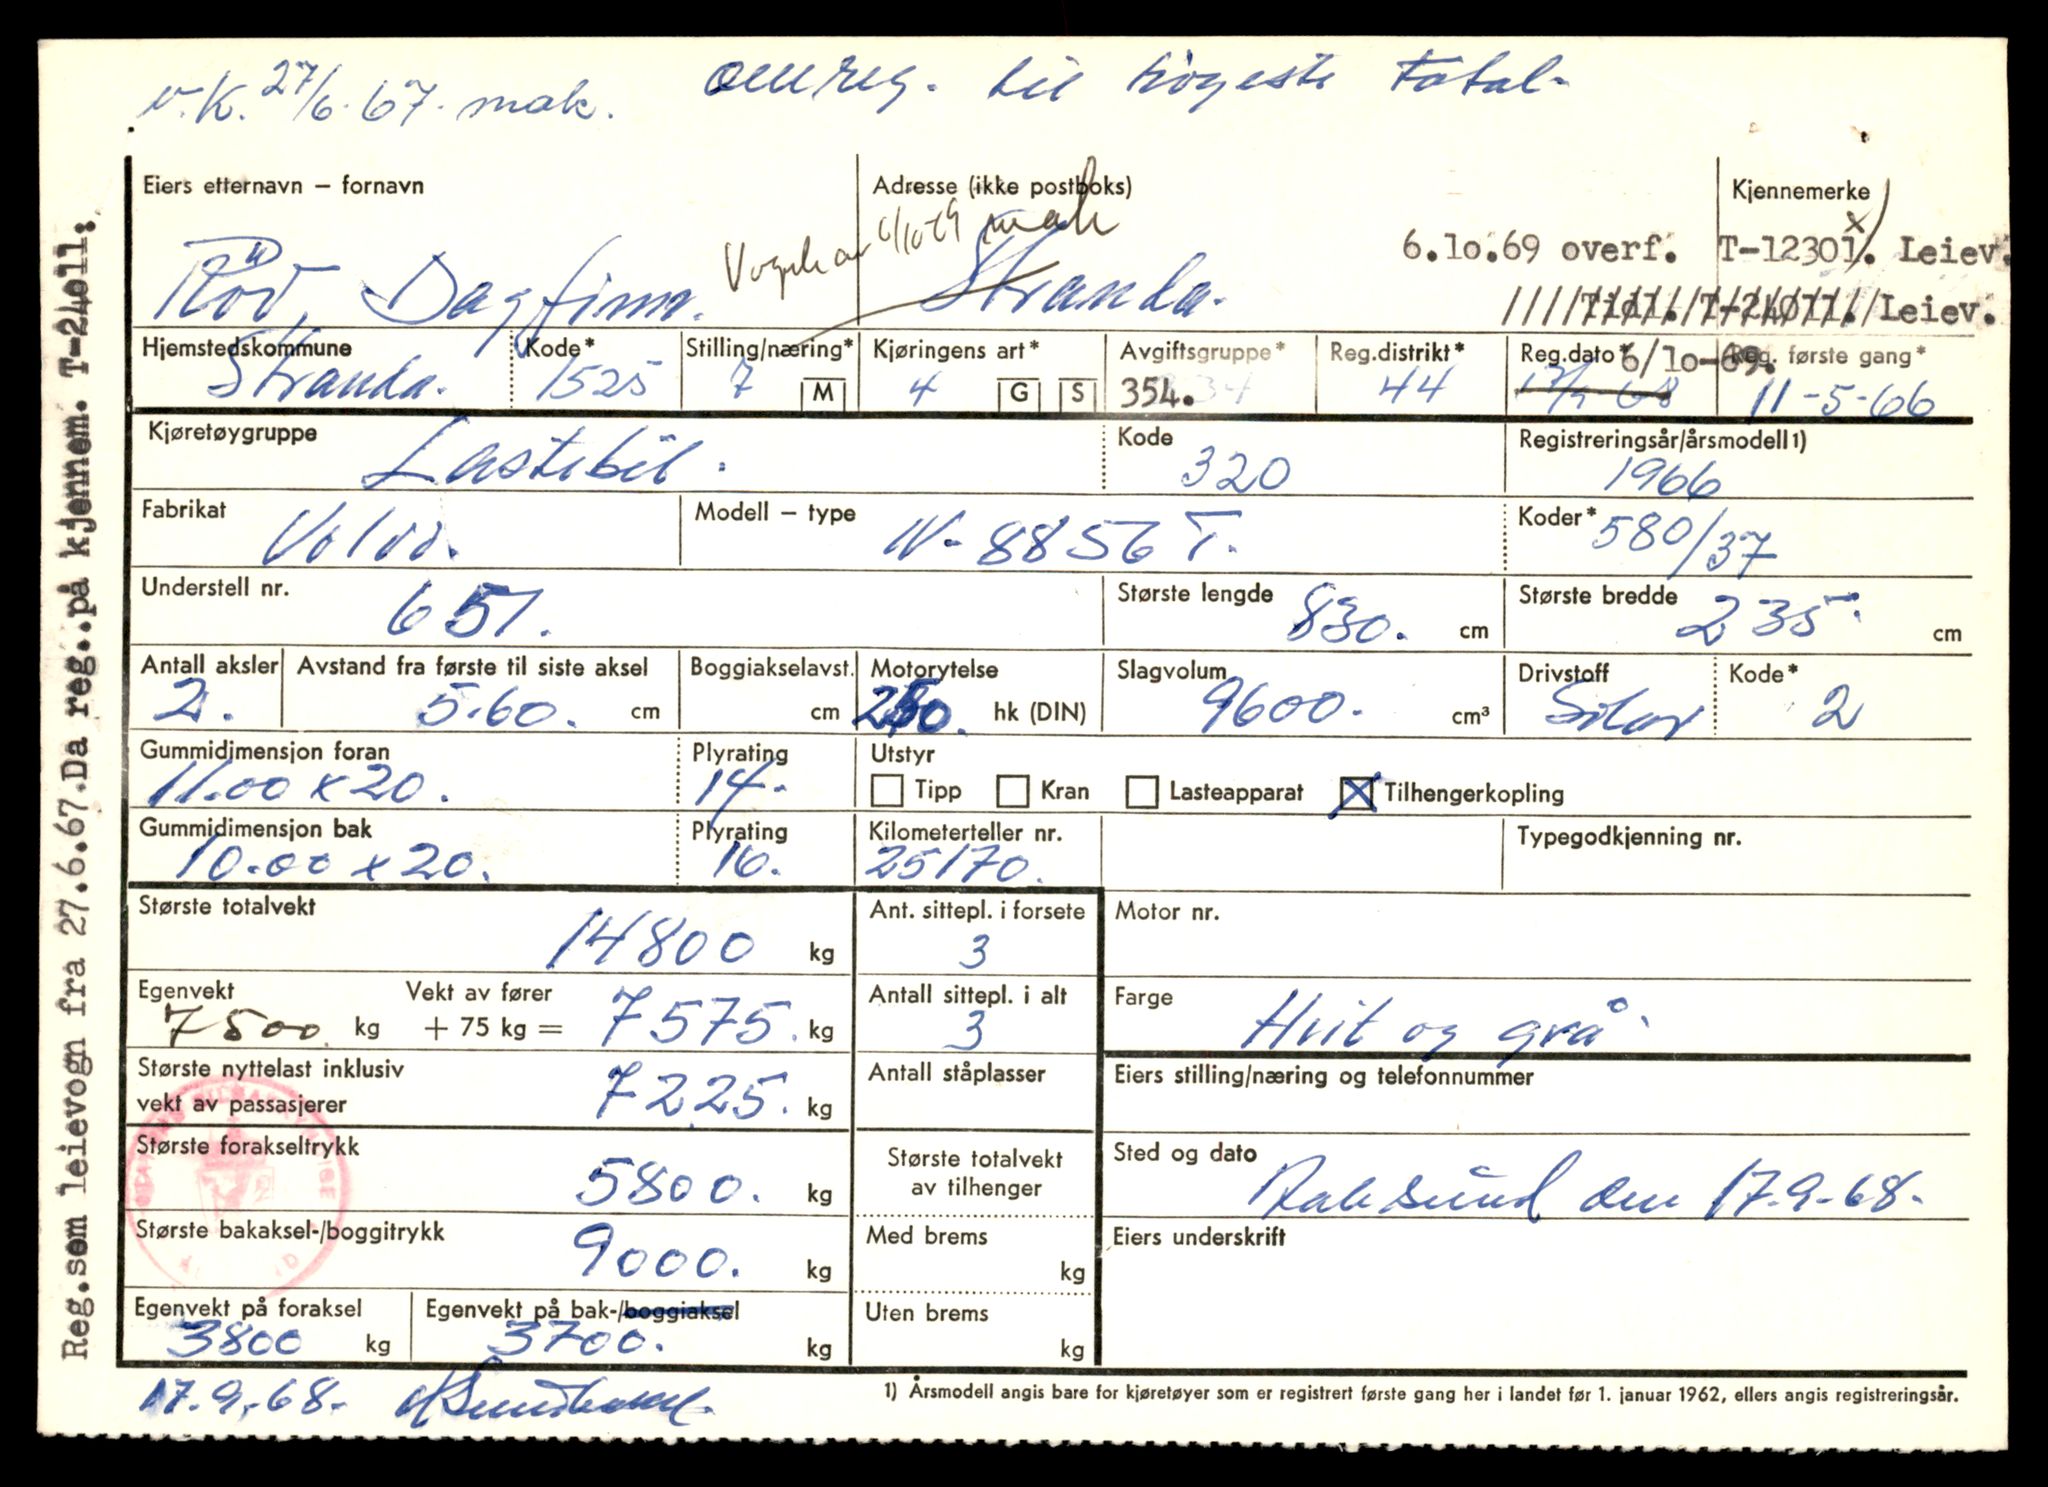 v.K. 27/6-67. mak. omreg. til høgeste total-
Eiers etternavn – fornavn
Adresse (ikke postboks)
Kjennemerke
6/10-69 mak
x)
6.10.69 overf. T-12301. Leiev.
Dagfinn.
Stranda.
Tidl. T-24011. Leiev.
Hjemstedskommune Kode* Stilling/næring* Kjøringens art* Avgiftsgruppe* Reg.distrikt* Reg.dato* Reg. første gang*
6/10-69.
Stranda. 1525 7 M 4 G S 354. 44 17/9 68 11-5-66
Kjøretøygruppe Kode Registreringsår/årsmodell 1)
Lastebil. 320 1966
Fabrikat Modell – type Koder*
Volvo. N-8856 T. 580/37
Understell nr. Største lengde Største bredde
651. 830. cm 235. cm
Antall aksler Avstand fra første til siste aksel Boggiakselavst. Motorytelse Slagvolum Drivstoff Kode*
2. 5.60. cm cm 250. hk (DIN) 9600. cm³ Solar 2
Gummidimensjon foran Plyrating Utstyr
11.00 x 20. 14. Tipp Kran Lasteapparat Tilhengerkopling
Gummidimensjon bak Plyrating Kilometerteller nr. Typegodkjenning nr.
10.00 x 20. 16. 25170.
Største totalvekt Ant. sittepl. i forsete Motor nr.
14800 kg 3
Egenvekt Vekt av fører Antall sittepl. i alt Farge
7500 kg + 75 kg = 7575. kg 3 Hvit og grå.
Største nyttelast inklusiv Antall ståplasser Eiers stilling/næring og telefonnummer
vekt av passasjerer 7225. kg
Største forakseltrykk Største totalvekt Sted og dato
5800. kg av tilhenger den 17.9-68.
Største bakaksel-/boggitrykk Med brems Eiers underskrift
9000. kg kg
Egenvekt på foraksel Egenvekt på bak-/boggiaksel Uten brems
3800 kg 3700. kg kg
17.9.68.
1) Årsmodell angis bare for kjøretøyer som er registrert første gang her i landet før 1. januar 1962, ellers angis registreringsår.
Reg.som leievogn fra 27.6.67.Da reg..på kjennem. T-24011.